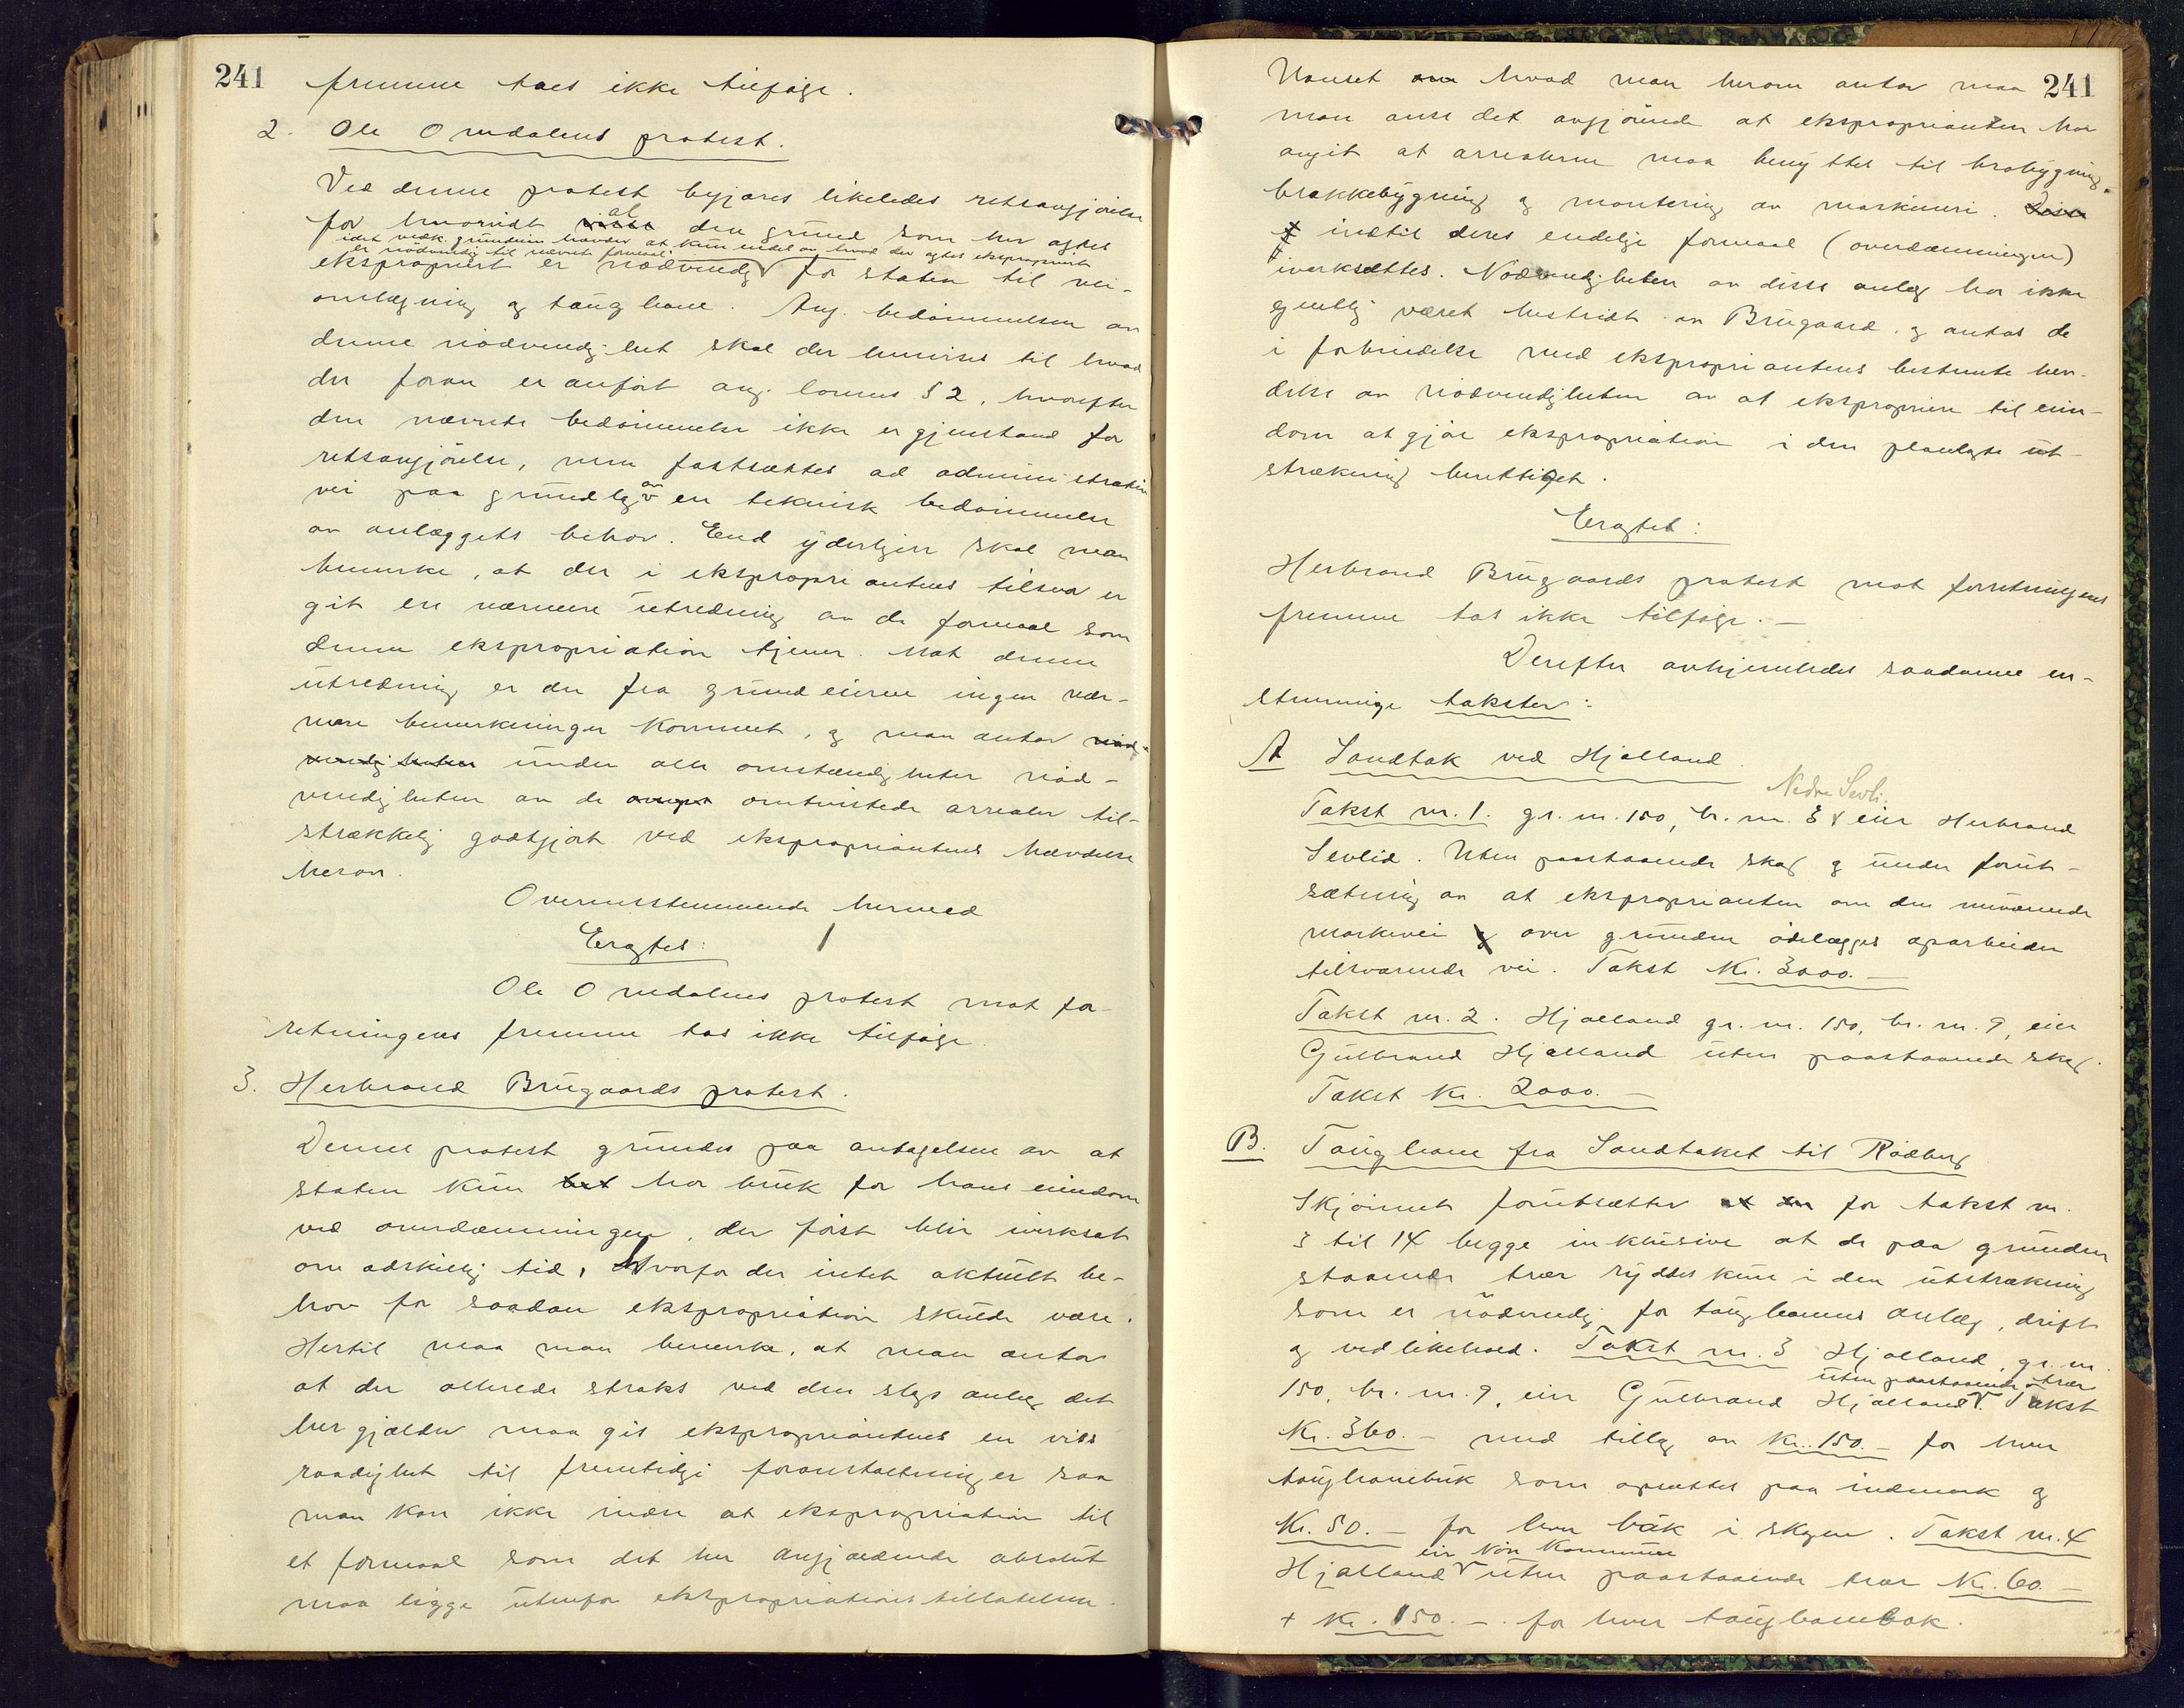 241
fremme taes ikke tilfølge.
2. Ole Omdalens protest.
Ved denne protest begjæres likeledes retsavgjørelse
for hvorvidt al den grund som her agtes
idet vedk. grundeier hævder at kun endel av hvad der agtes ekspropriert
er nødvendig til nævnte formaal
ekspropriert er nødvendig for staten til vei-
omlægning og taugbane. Ang. bedømmelsen av
denne nødvendighet skal der henvises til hvad
der foran er anført ang. lovens § 2, hvorefter
den nævnte bedømmelse ikke er gjenstand for
retsavgjørelse, men fastsættes ad administrativ
vei paa grundlag av en teknisk bedømmelse
av anlæggets behov. End yderligere skal man
bemerke, at der i ekspropriantens tilsvar er
git en nærmere utredning av de formaal som
denne ekspropriation tjener. Mot denne
utredning er der fra grundeierne ingen nær-
mere bemerkninger kommet, og man antar nød-
vendigheten under alle omstændigheter nød-
vendigheten av de omtvistede arealer til-
strækkelig godtgjort ved ekspropriantens hævdelse
herom.
Overensstemmende hermed
Eragtes:
Ole Omdalens protest mot for-
retningens fremme tas ikke tilfølge.
3. Herbrand Brugaards protest.
Denne protest grundes paa antagelsen av at
staten kun har bruk for hans eiendom
ved overdæmningen, der først blir iverksat
om adskillig tid, hvorfor der intet aktuelt be-
hov for saadan ekspropriation skulde være.
Hertil maa man bemerke, at man antar
at der allerede straks ved den slags anlæg det
her gjælder maa gis eksproprianten en viss
raadighet til fremtidige foranstaltninger saa
man kan ikke indse at ekspropriation til
et formaal som det her angjældende absolut
maa ligge utenfor ekspropriationstillatelsen.
241
Uanset om hvad man herom antar maa
man anse det avgjørende at eksproprianten har
angit at arealerne maa benyttes til brobygning,
brakkebygning og montering av maskineri.
indtil deres endelige formaal (overdæmningen)
iverksættes. Nødvendigheten av disse anlæg har ikke
egentlig været bestridt av Brugaard og antas de
i forbindelse med ekspropriantens bestemte hæv-
delse av nødvendigheten av at ekspropriere til eien-
dom at gjøre ekspropriation i den planlagte ut-
strækning berettiget.
Eragtet:
Herbrand Brugaards protest mot forretningens
fremme tas ikke tilfølge. —
Derefter avhjemledes saadanne en-
stemmige takster:
A Sandtak ved Hjalland.
Nedre Sevli.
Takst nr. 1. gr. nr. 150, br. nr. 3 eier Herbrand
Sevlid. Uten paastaaende skog og under forut-
sætning av at eksproprianten om den nuværende
markvei over grunden ødelægges oparbeider
tilsvarende vei. Takst Kr. 3000. —
Takst nr. 2. Hjalland gr. nr. 150, br. nr. 9, eier
Gulbrand Hjalland uten paastaaende skog.
Takst Kr. 2000. —
B. Taugbane fra Sandtaket til Rødberg
Skjønnet forutsætter at for takst nr.
3 til 14 begge inklusive at de paa grunden
staaende trær ryddes kun i den utstrækning
som er nødvendig for taugbanens anlæg, drift
og vedlikehold. Takst nr. 3 Hjalland, gr. nr.
uten paastaaende trær
150, br. nr. 9, eier Gulbrand Hjalland. Takst
Kr. 360. — med tillæg av Kr. 150. — for hver
taugbanebuk som opsættes paa indmark og
Kr. 50. — for hver buk i skogen. Takst nr. 4
eier Nore Kommune
Hjalland uten paastaaende trær Kr. 60. —
+ Kr. 150. — for hver taugbanebuk.